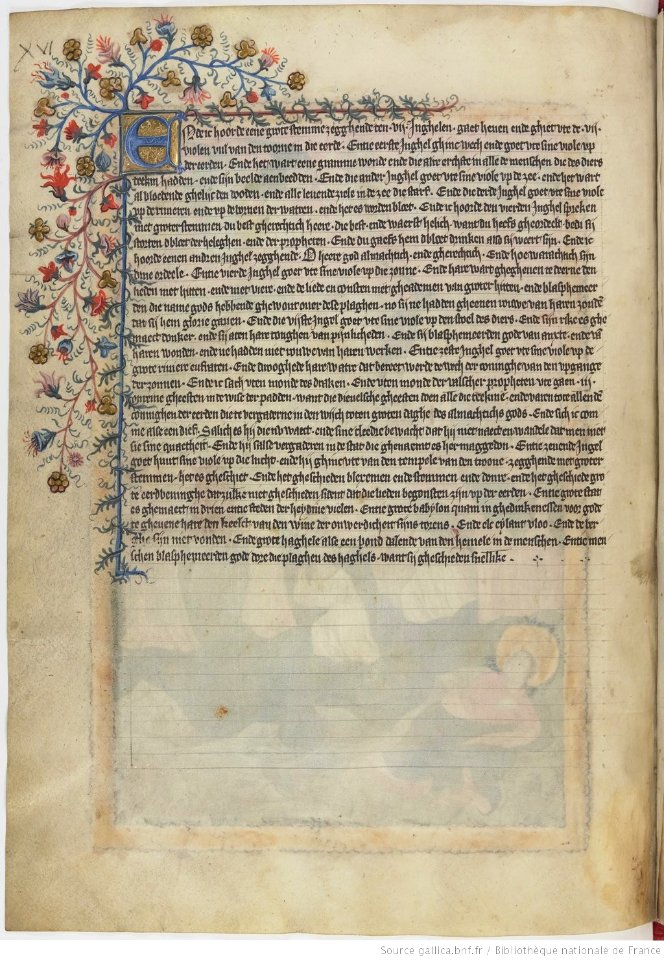 XVI
Ende ic hoorde eene groet stemme zegghende den · vij · Inghelen · gaet henen ende ghiet vte de · vij ·
violen vul van den toorne in die eerde · Entie eerste Inghel ghinc wech ende goet vte sine viole vp
der eerden · Ende het waert eene gramme wonde ende die alre erchste in alle de menschen die des diers
teekin hadden · ende sijn beelde aenbeedden · Ende die ander Inghel goet vte sine viole vp de zee · ende het wart
al bloet ende ghelijc den dooden · ende alle leuende ziele in de zee die starf · Ende die derde Inghel goet vte sine viole
vp de riuieren ende vp de borren der watren · ende het es worden bloet · Ende ic hoorde den vierden Inghel spreken
met groter stemmen du best gherechtich heere · die best · ende waerst helich · want du heefs gheordeelt · bedi sij
storten dbloet der heleghen · ende der propheten · Ende du gaefs hem dbloet drinken also sij weert sijn · Ende ic
hoorde eenen andren Inghel zegghende · O heere god almachtich · ende gherechtich · Ende hoe warachtich sijn
dine ordeele · Entie vierde Inghel goet vte sine viole vp die zonne · Ende haer waert ghegheuen te deerne den
lieden met hitten · ende met viere · ende de liede en consten met gheademen van groter hitten · ende blasphemeer
den die name gods hebbende ghewout ouer dese plaghen · no sij ne hadden gheenen rouwe van haren zonden
dat sij hem glorie gauen · Ende die vijfste Ingel goet vte sine viole vp den stoel des diers · Ende sijn rike es ghe
maect donker · ende sij aten hare tonghen van pijnlicheden · Ende sij blasphemeerden gode van anxte · ende van
haren wonden · ende ne hadden niet rouwe van haren werken · Entie zeste Inghel goet vte sine viole vp de
grote riuiere eufraten · Ende drooghede haer water dat bereet worde de wech der coninghe van den vpgange
der zonnen · Ende ic sach vten monde des draken · Ende vten monde der valscher propheten vte gaen · iij ·
onreine gheesten in de wise der padden · want die dieuelsche gheesten doen alle die teekine · ende varen tote allen den
coninghen der eerden die te vergaderne in den wijch toten groten daghe des almachtichs gods · Ende sich ic com
me alse een dief · Salich es hij die nv waect · ende sine cleedre bewacht dat hij niet naect en wandele dat men niet
sie sine quaetheit · Ende hij salse vergadren in de stat die ghenaemt es hermageddon · Entie zeuende Ingel
goet hunt sine viole vp die lucht · ende hij ghinc vte van den tempele van den troone · zegghende met groter
stemmen · het es ghesciet · Ende het ghescieden blexemen ende stemmen · ende donre · ende het ghesciede gro
te eerdbeuinghe dat zulke niet ghescieden sident dat die lieden begonsten zijn vp der eerden · Entie grote stat
es ghemaect in drien entie steden der heydine vielen · Entie grote babylon quam in ghedinkenessen voor gode
te gheuene hare den keelct van den wine der onwerdicheit sijns torens · Ende elc eylant vloo · Ende de ber
ghe sijn niet vonden · Ende grote haghele alse een pond dalende van den hemele in de menschen · Entie men
schen blasphemeerden gode dore die plaghen des haghels · want sij ghescieden snellike ·
Source gallica.bnf.fr / Bibliothèque nationale de France